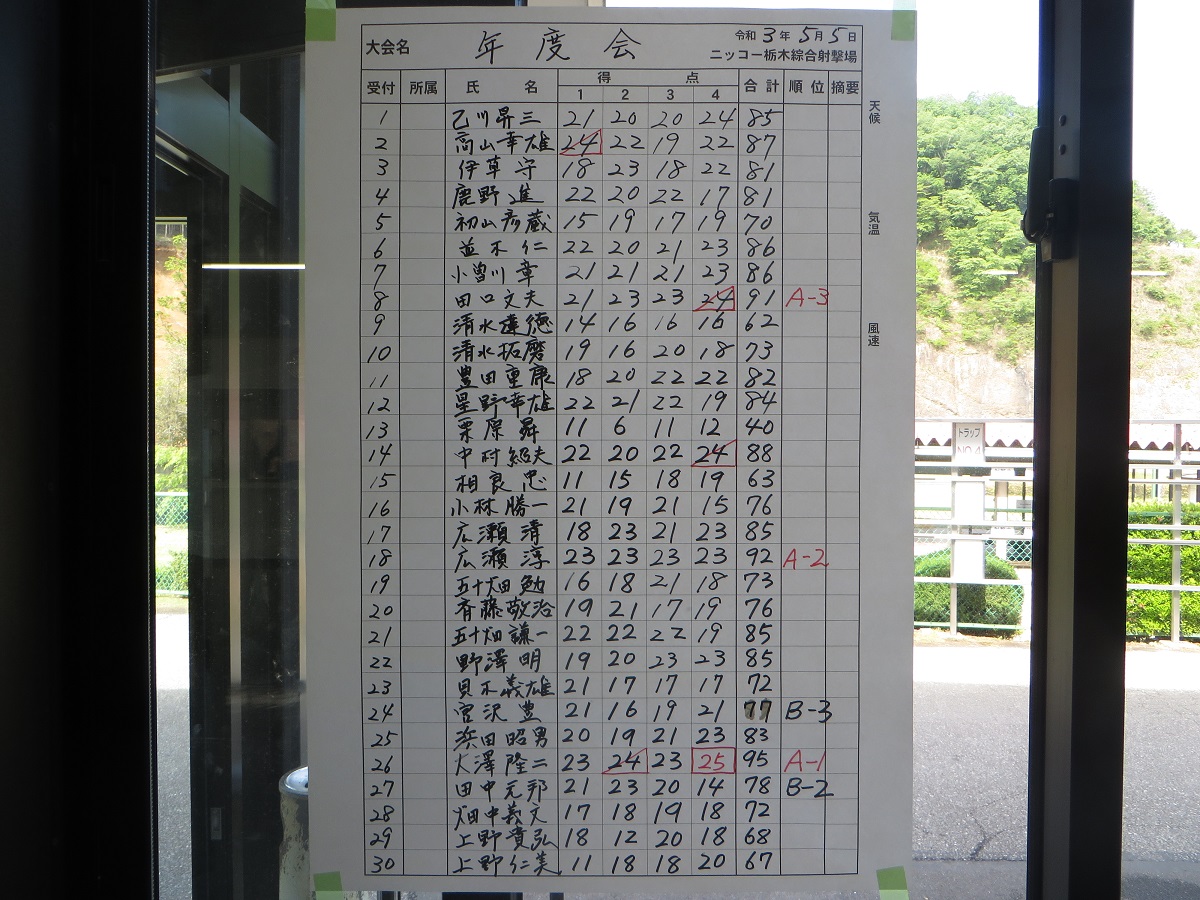 大会名 年度会 令和3年5月5日
ニッコー栃木綜合射撃場
受付 所属 氏名 得点 合計 順位 摘要
1 2 3 4
1 乙川昇三 21 20 20 24 85
2 高山幸雄 24 22 19 22 87
3 伊草守 18 23 18 22 81
4 鹿野進 22 20 22 17 81
5 初山彦蔵 15 19 17 19 70
6 並木仁 22 20 21 23 86
7 小曽川章 21 21 21 23 86
8 田口文夫 21 23 23 24 91 A-3
9 清水達徳 14 16 16 16 62
10 清水拓磨 19 16 20 18 73
11 豊田重康 18 20 22 22 82
12 星野幸雄 22 21 22 19 84
13 栗原昇 11 6 11 12 40
14 中村紹夫 22 20 22 24 88
15 相良忠 11 15 18 19 63
16 小林勝一 21 19 21 15 76
17 広瀬清 18 23 21 23 85
18 広瀬淳 23 23 23 23 92 A-2
19 五十畑勉 16 18 21 18 73
20 斉藤敬治 19 21 17 19 76
21 五十畑謙一 22 22 22 19 85
22 野澤明 19 20 23 23 85
23 貝木義雄 21 17 17 17 72
24 宮沢豊 21 16 19 21 77 B-3
25 浜田昭男 20 19 21 23 83
26 大澤隆二 23 24 23 25 95 A-1
27 田中元邦 21 23 20 14 78 B-2
28 畑中義文 17 18 19 18 72
29 上野貴弘 18 12 20 18 68
30 上野仁美 11 18 18 20 67
天候
気温
風速
トラップ